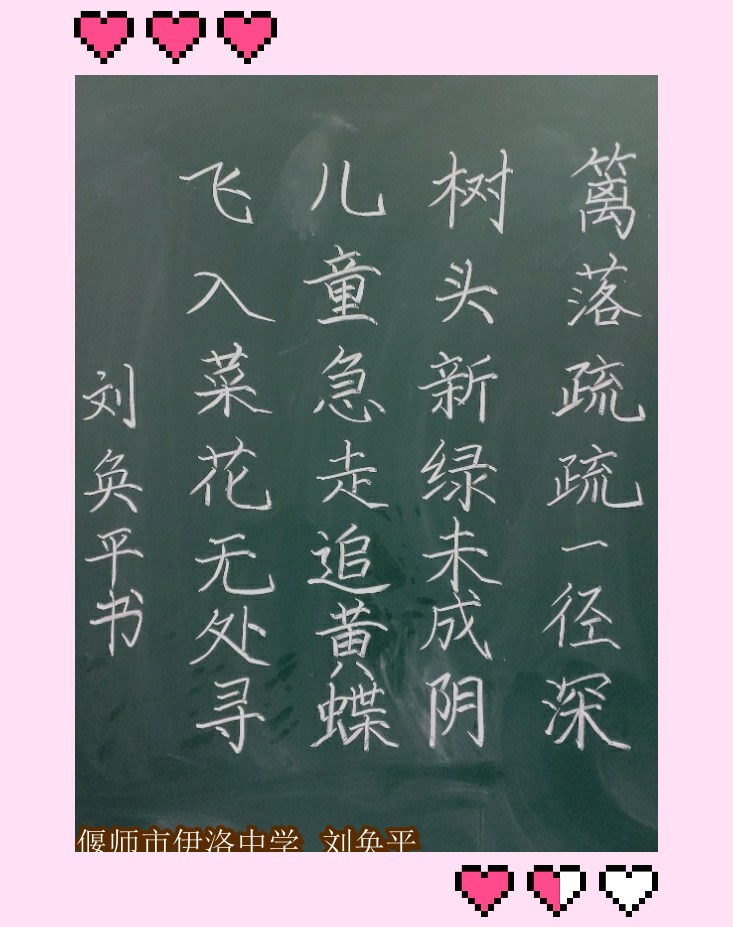 篱落疏疏一径深
树头新绿未成阴
儿童急走追黄蝶
飞入菜花无处寻
刘奂平书
偃师市伊洛中学 刘奂平